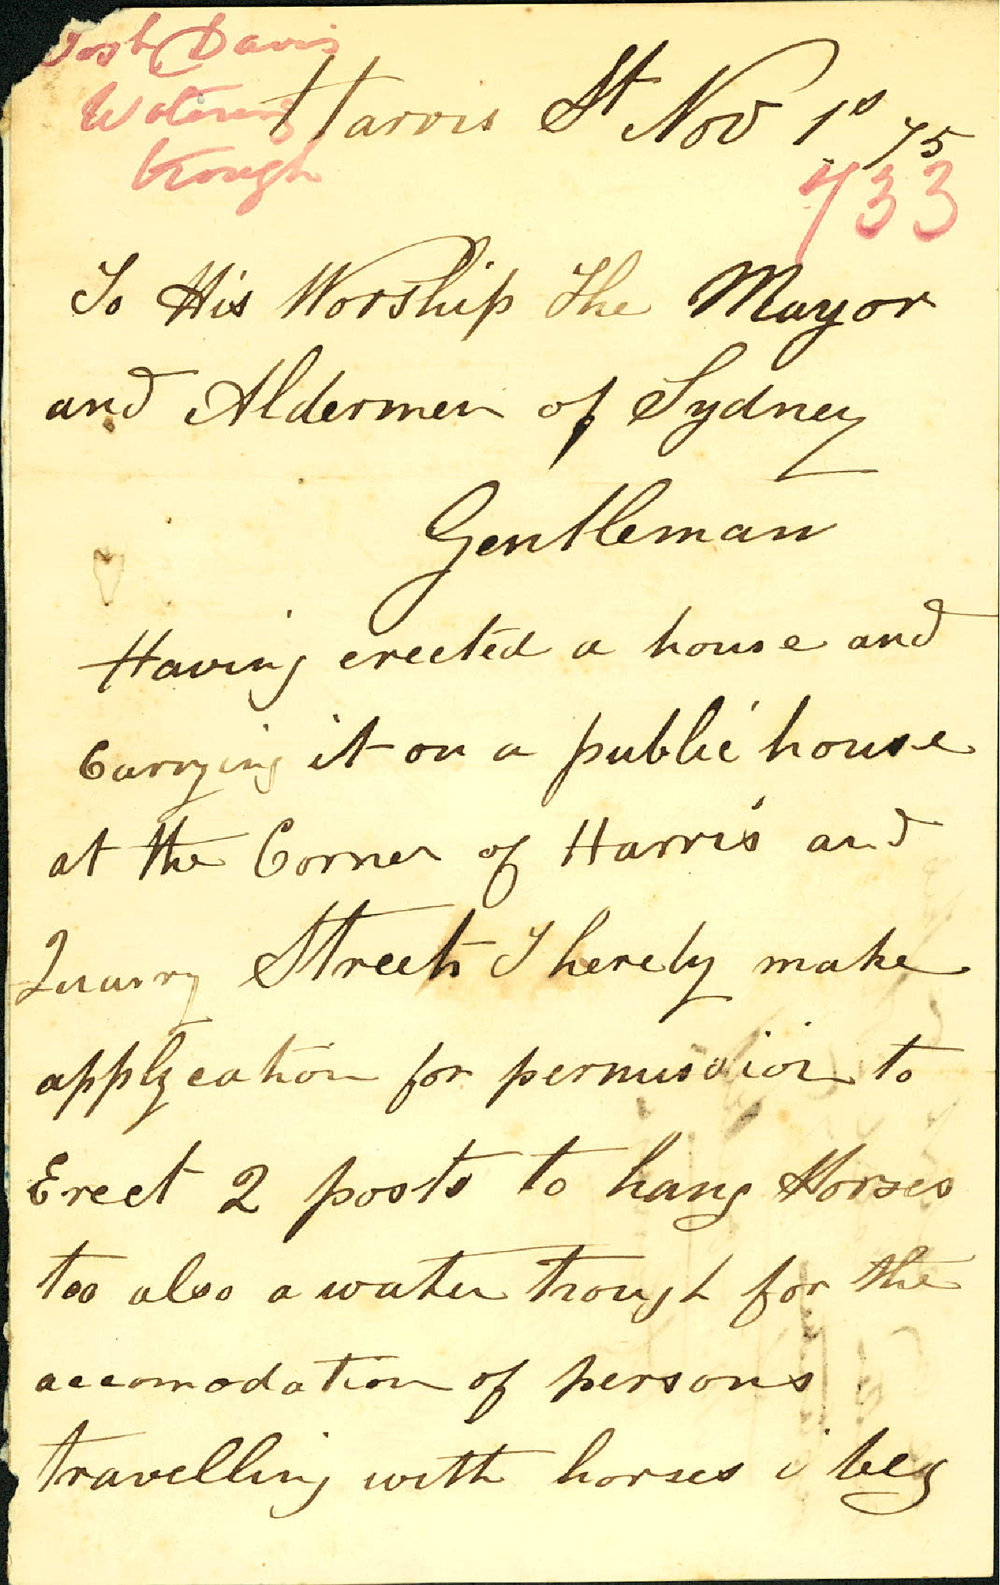 Josh Davis
Watering
trough
Harris St Nov 1s 75
733
To His Worship The Mayor
and Aldermen of Sydney
Gentleman
Having erected a house and
Carrying it on a public house
at the Corner of Harris and
Quarry Streets I hereby make
applycation for permission to
Erect 2 posts to hang Horses
too also a water trough for the
accomodation of persons
travelling with horses i beg